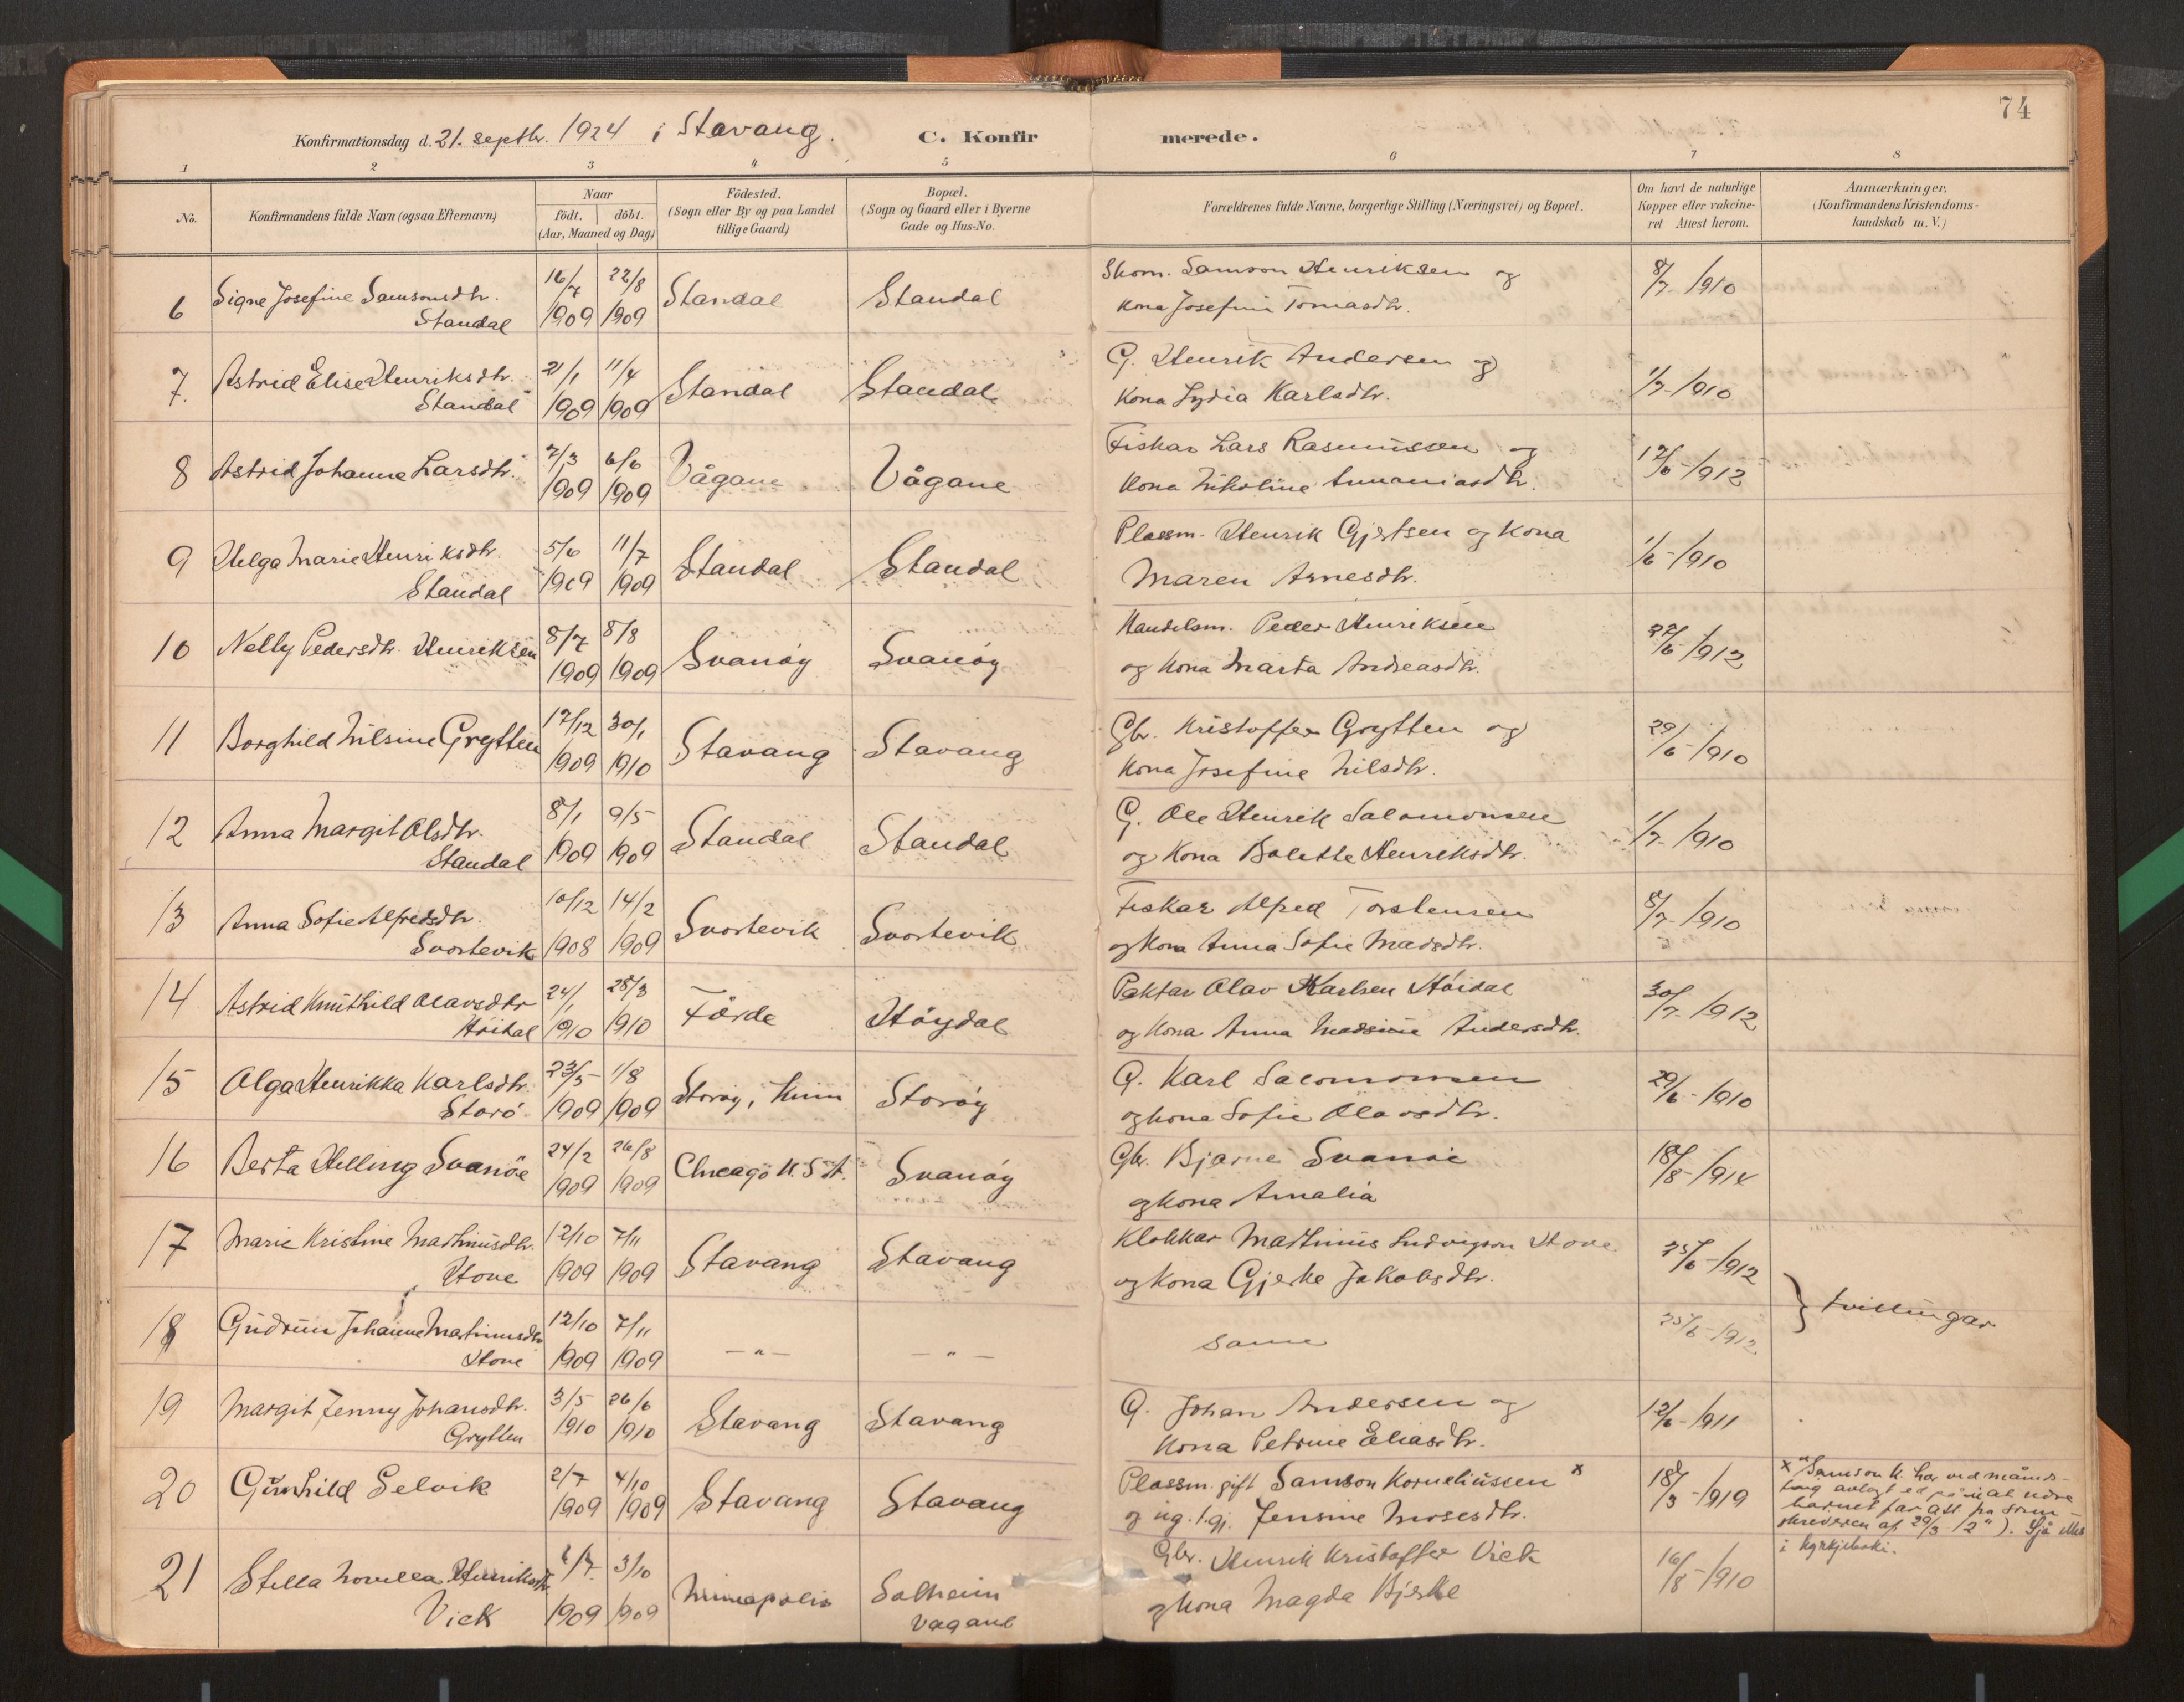 74
Konfirmationsdag d. 21. septbr. 1924 i Stavang.
C. Konfirmerede.
1 2 3 4 5 6 7 8
No.
Konfirmandens fulde Navn (ogsaa Efternavn)
Naar
födt. döbt.
(Aar, Maaned og Dag)
Födested.
(Sogn eller By og paa Landet
tillige Gaard)
Bopæl.
(Sogn og Gaard eller i Byerne
Gade og Hus-No.
Forældrenes fulde Navne, borgerlige Stilling (Næringsvei) og Bopæl.
Om havt de naturlige
Kopper eller vakcine-
ret Attest herom.
Anmærkninger.
(Konfirmandens Kristendoms-
kundskab m. V.)
6 Signe Josefine Samsonsdtr. 16/7 22/8 Standal Standal Skom. Samson Henriksen og 8/7-1910
Standal 1909 1909 kona Josefine Tomasdtr.
7. Astrid Elise Henriksdtr. 21/1 11/4 Standal Standal G. Henrik Andersen og 1/7-1910
Standal 1909 1909 kona Lydia Karlsdtr.
8 Astrid Johanne Larsdtr. 7/3 6/6 Vågane Vågane Fiskar Lars Rasmussen og 12/6-1912
1909 1909 kona Nikoline Annaniasdtr.
9 Helga Marie Henriksdtr. 5/6 11/7 Standal Standal Plassm. Henrik Gjertsen og kona 1/6-1910
Standal 1909 1909 Maren Arnesdtr.
10 Nelly Pedersdtr. Henriksen 8/7 8/8 Svanöy Svanöy Handelsm. Peder Henriksen 27/6-1912
1909 1909 og kona Marta Andreasdtr.
11 Borghild Nilsine Grytten 17/12 30/1 Stavang Stavang Gbr. Kristoffer Grytten og 29/6-1910
1909 1910 kona Josefine Nilsdtr.
12 Anna Margit Olsdtr. 8/1 9/5 Standal Standal G. Ole Henrik Salomonsen 1/7-1910
Standal 1909 1909 og kona Bolette Henriksdtr.
13 Anna Sofie Alfredsdtr. 10/12 14/2 Svortevik Svortevik Fiskar Alfred Torstensen 8/7-1910
Svortevik 1908 1909 og kona Anna Sofie Madsdtr.
14 Astrid Knuthild Olavsdtr 24/1 28/3 Förde Höydal Paktar Olav Karlsen Höidal 30/7-1912
Höidal 1910 1910 og kona Anna Madsine Andersdtr.
15 Olga Henrikka Karlsdtr. 23/5 1/8 Storöy, Kinn Storöy G. Karl Salomonsen 29/6-1910
Storö 1909 1909 og kona Sofie Olavsdtr.
16 Berta Helling Svanöe 24/2 26/8 Chicago U.S.A. Svanöy Gbr. Bjarne Svanöe 18/8-1914
1909 1909 og kona Amalia
17 Marie Kristine Martinusdtr. 12/10 7/11 Stavang Stavang Klokkar Martinus Ludvigson Hove 25/6-1912
Hove 1909 1909 og kona Gjerke Jakobsdtr.
} tvillingar
18 Gudrun Johanne Martinusdtr 12/10 7/11 — " — — " — same 25/6-1912
Hove 1909 1909
19 Margit Jenny Johansdtr. 3/5 26/6 Stavang Stavang G. Johan Andersen og 12/6-1911
Grytten 1910 1910 kona Petrine Eliasdtr.
20 Gunhild Selvik 2/7 4/10 Stavang Stavang Plassm. gift Samson Korneliussen x 18/3-1919
1909 1909 og ug. t.gj. Jensine Mosesdtr.
x "Samson K. har ved
avlagt ed på at
barnet far att fra
skrevern af 29/3 12"). Sjå
i kyrkjeboki.
21 Stella Novella Henriksdtr. /7 3/10 Minneapolis Solheim Gbr. Henrik Kristoffer Vick 16/8-1910
Vick 1909 1909 Vågane og kona Magda Bjerke